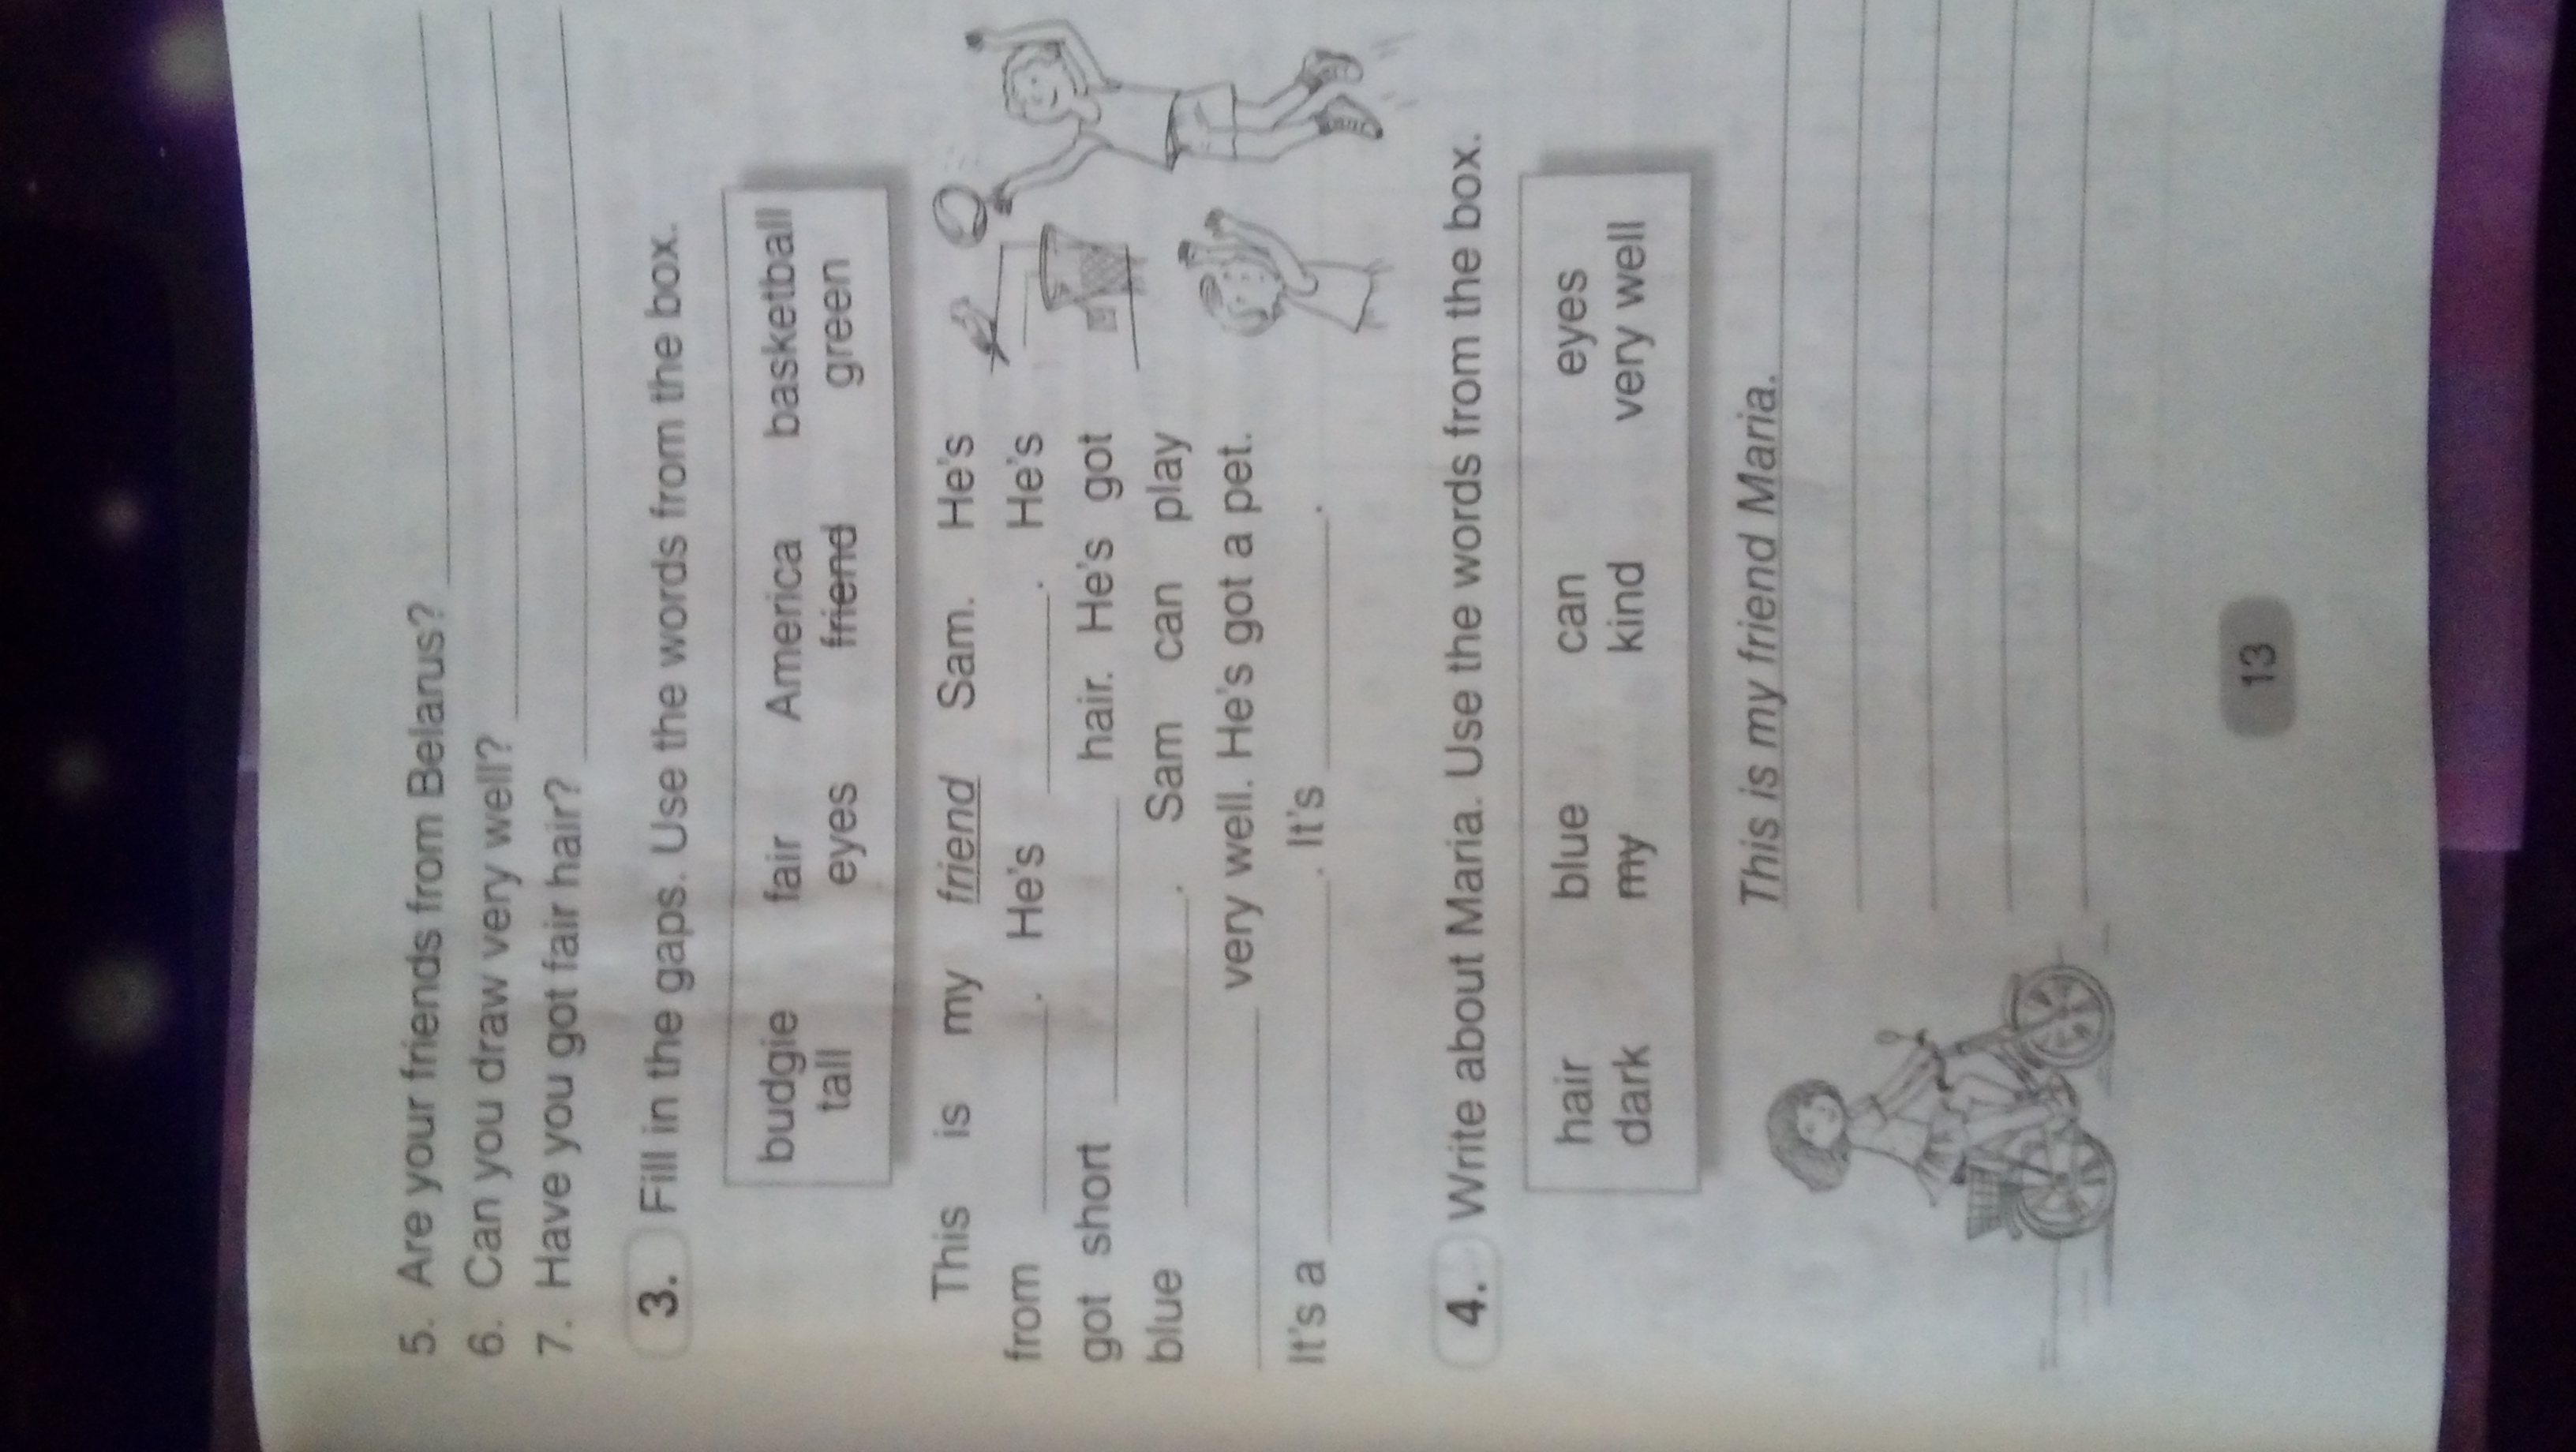 5. Are your friends from Belarus?
6. Can you draw very well?
7. Have you got fair hair?
3. Fill in the gaps. Use the words from the box.
budgie fair America basketball
tall eyes friend green
This is my friend Sam. He's
from ______. He's ______. He's
got short ______ hair. He's got
blue ______. Sam can play
______ very well. He's got a pet.
It's a ______. It's ______.
4. Write about Maria. Use the words from the box.
hair blue can eyes
dark my kind very well
This is my friend Maria.
13